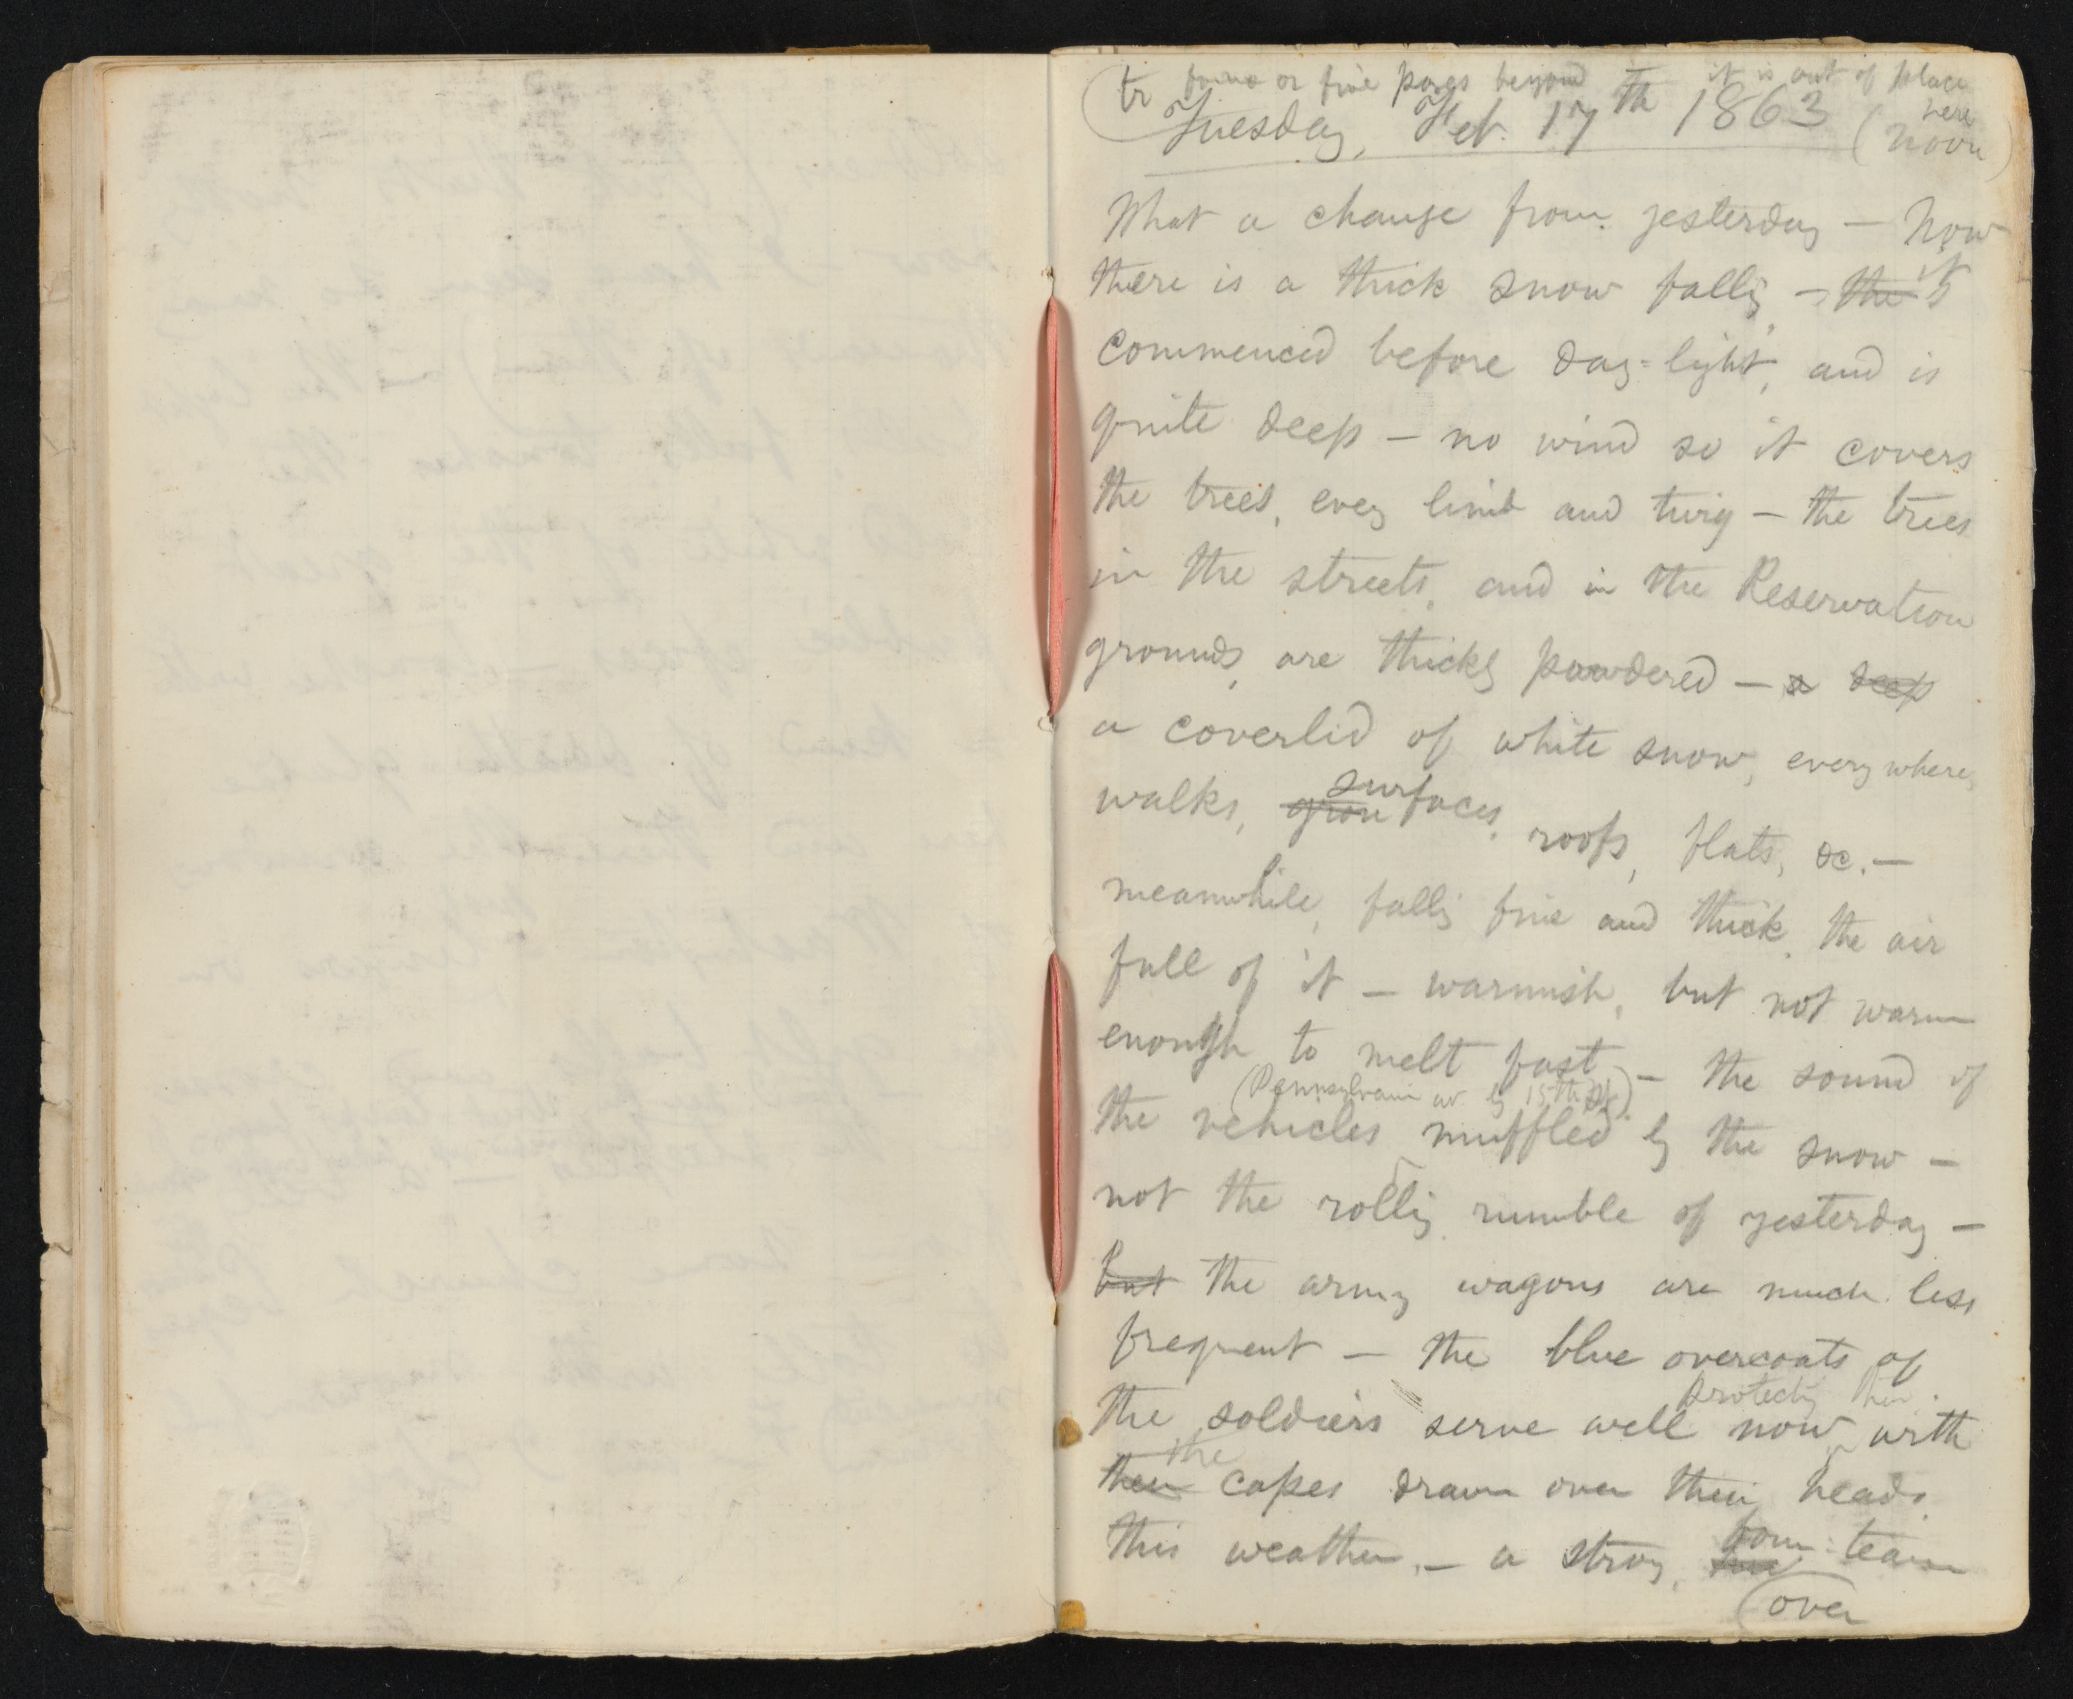 tr four or five pages beyond it is out of place here
Tuesday, Feb. 17th 1863 (noon)
What a change from yesterday — Now
there is a thick snow falling — the it
commenced before day-light, and is
quite deep — no wind so it covers
the trees, every limb and twig — the trees
in the streets, and in the Reservation
grounds, are thickly powdered — a deep
a coverlid of white snow, every where,
walks, grou surfaces, roofs, flats, &c. —
meanwhile, falling fine and thick, the air
full of it — warmish, but not warm
enough to melt fast — the sound of
(Pennsylvania av. by 15th st.)
the vehicles muffled by the snow —
not the rolling rumble of yesterday —
but the army wagons are much less
frequent — the blue overcoats of
protecting them
the soldiers serve well now, with
the
their capes drawn over their heads
this weather, — a strong, four-team
(over